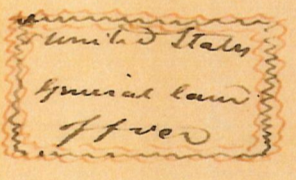 United States
General Land
Office